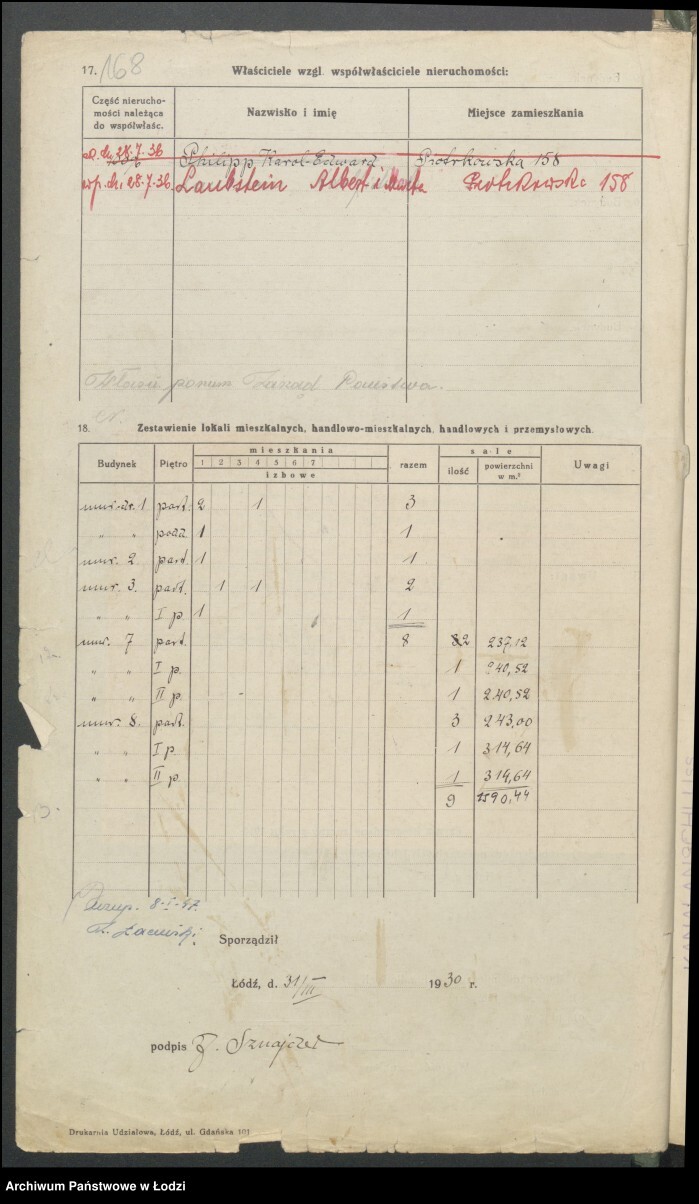 17. 168 Właściciele wzgl. współwłaściciele nieruchomości:
Część nierucho-
mości należąca
do współwłaśc.
Nazwisko i imię
Miejsce zamieszkania
28.7.36 Philipp Karol-Edward Piotrkowska 158
wp. dn. 28.7.36. Laubstein Albert i Marta Piotrkowska 158
Zarząd Państwa.
18. Zestawienie lokali mieszkalnych, handlowo-mieszkalnych, handlowych i przemysłowych.
Budynek Piętro mieszkania razem sale Uwagi
1 2 3 4 5 6 7 ilość powierzchni w m.²
izbowe
1 part. 2 1 3
" " podd. 1 1
mur. 2. part. 1 1
mur. 3. part. 1 1 2
" " I p. 1 1
mur. 7 part. 8 2 237,12
" " I p. 1 240,52
" " II p. 1 240,52
mur. 8. part. 3 243,00
" " I p. 1 314,64
" " II p. 1 314,64
9 1590,44
8-I-47.
Sporządził
Łódź, d. 31/III 1930 r.
podpis
Drukarnia Udziałowa, Łódź, ul. Gdańska 101
Archiwum Państwowe w Łodzi